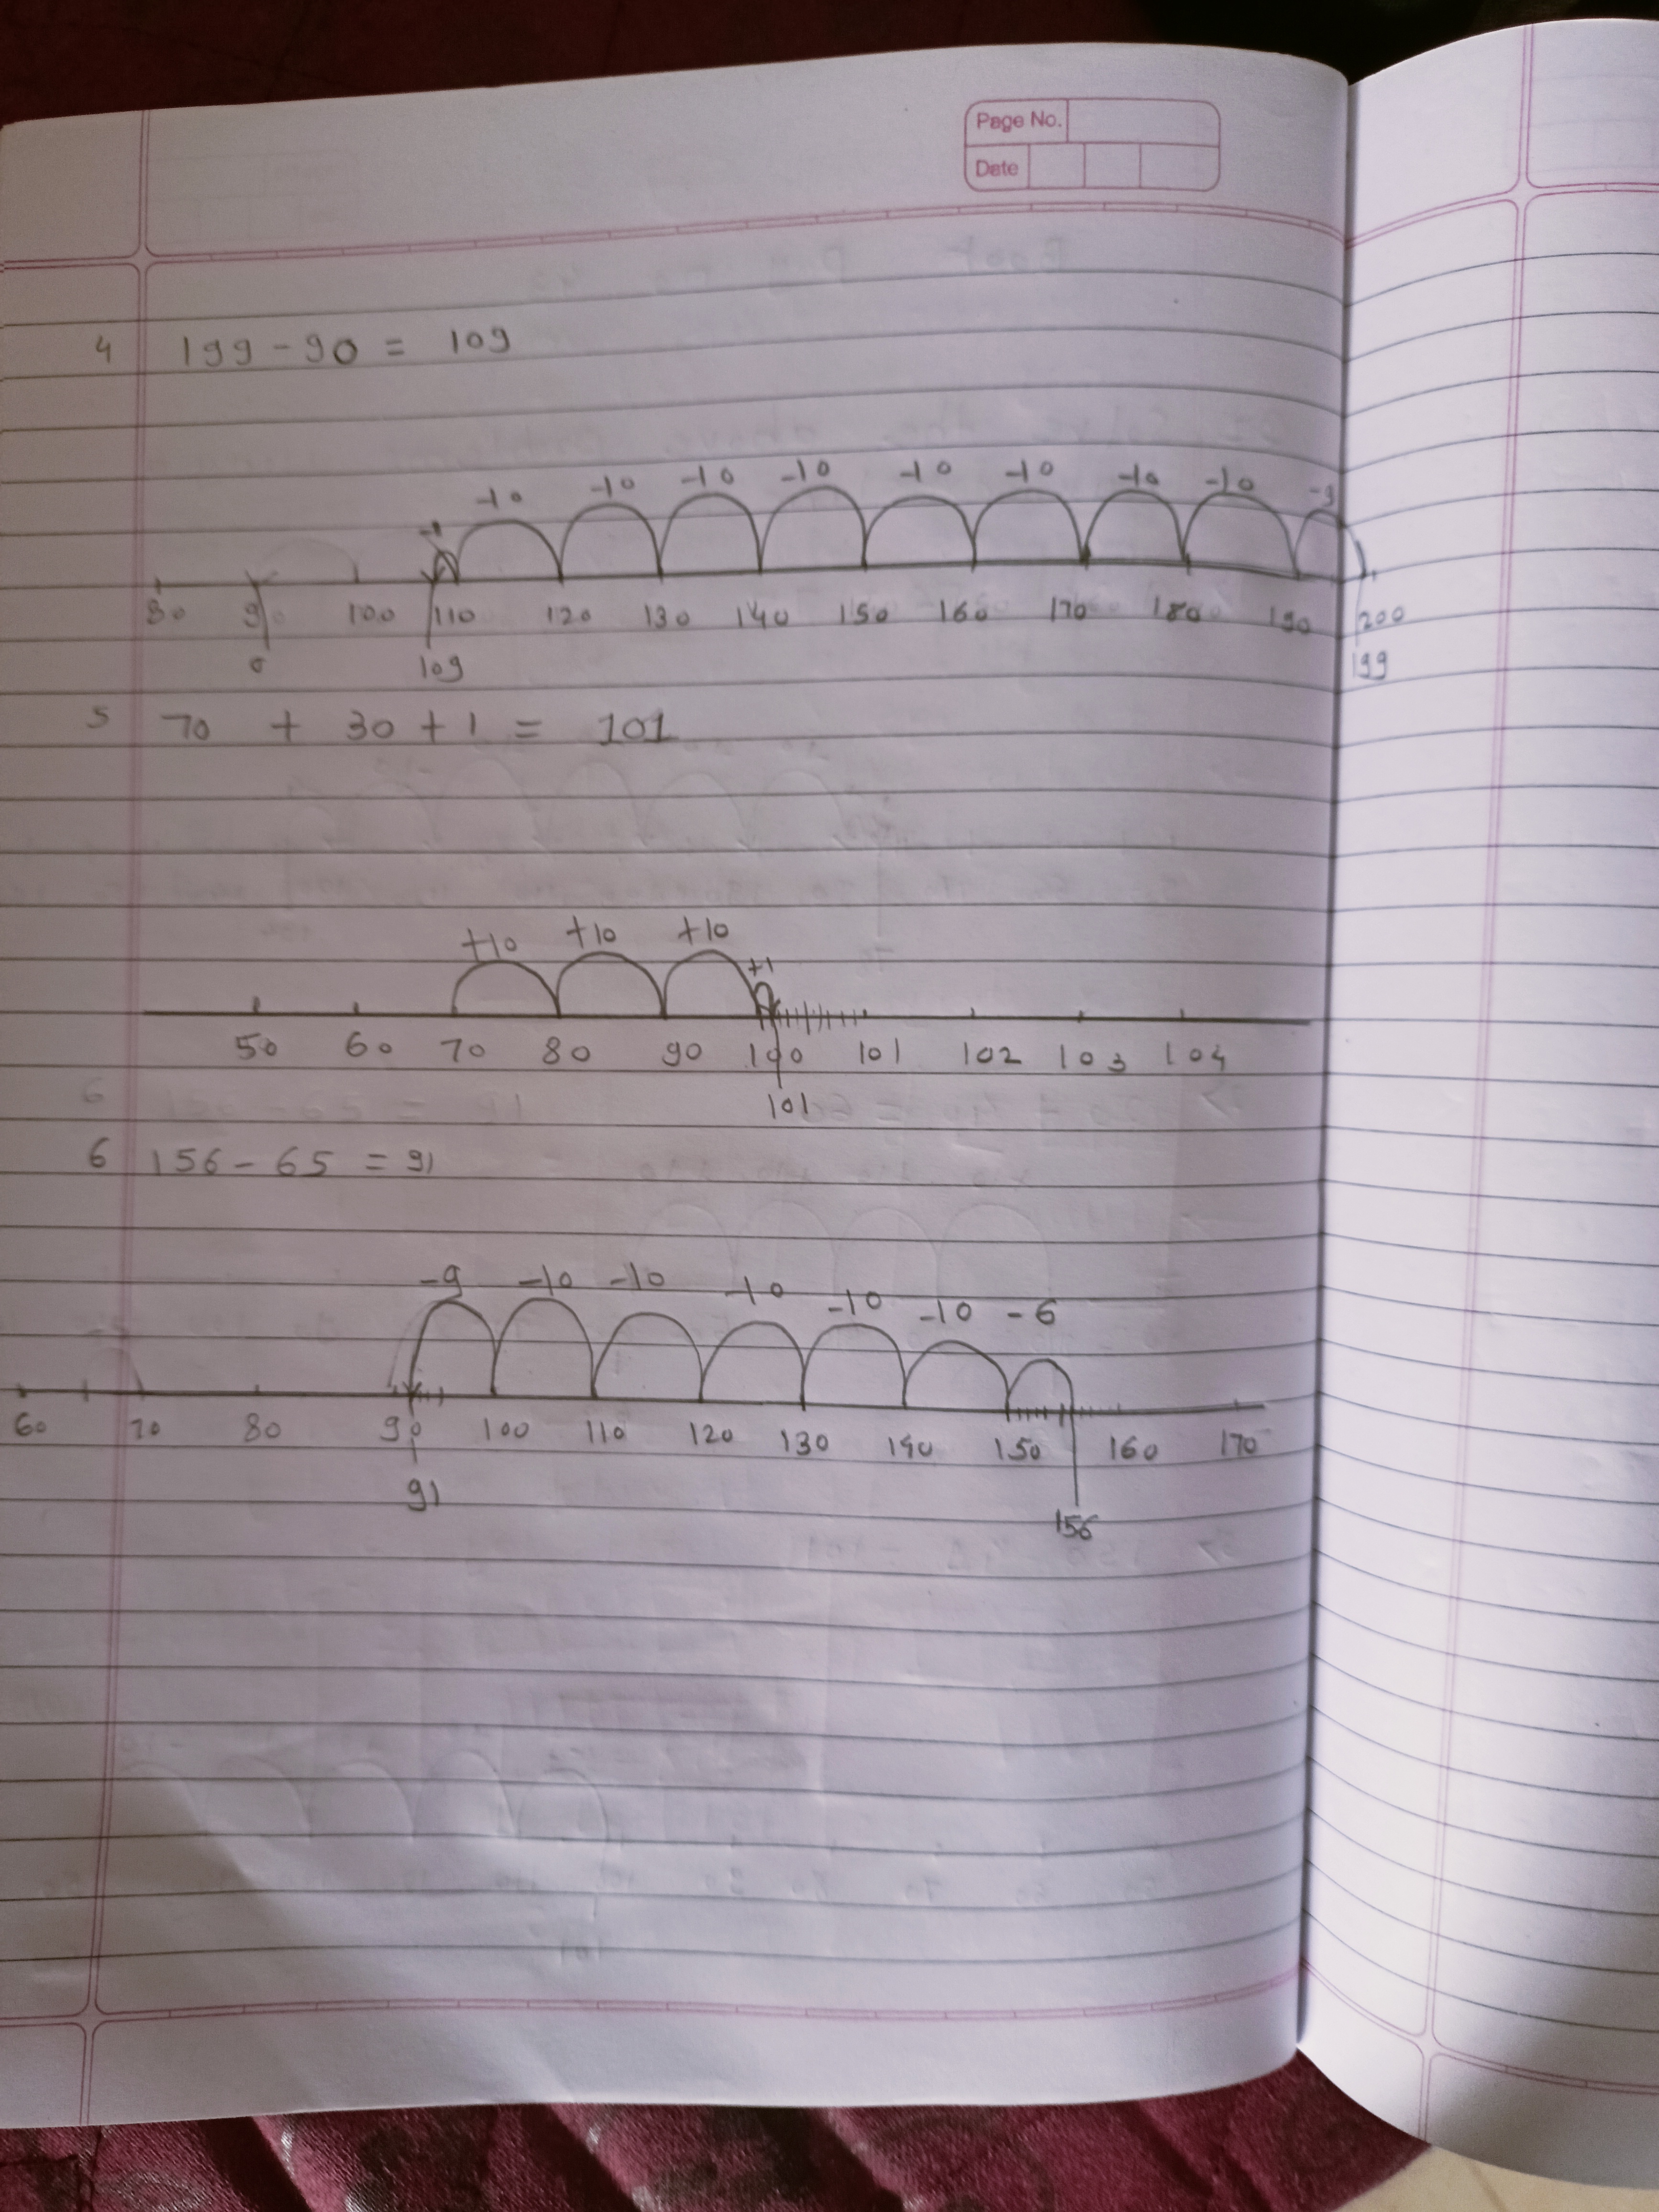 Page No.
Date
4 199 - 90 = 109
-10 -10 -10 -10 -10 -10 -10 -10 -9
-1
80 90 100 110 120 130 140 150 160 170 180 190 200
109 199
5 70 + 30 + 1 = 101
+10 +10 +10
+1
50 60 70 80 90 100 101 102 103 104
101
6 156 - 65 = 91
-9 -10 -10 -10 -10 -10 -6
60 70 80 90 100 110 120 130 140 150 160 170
91
156